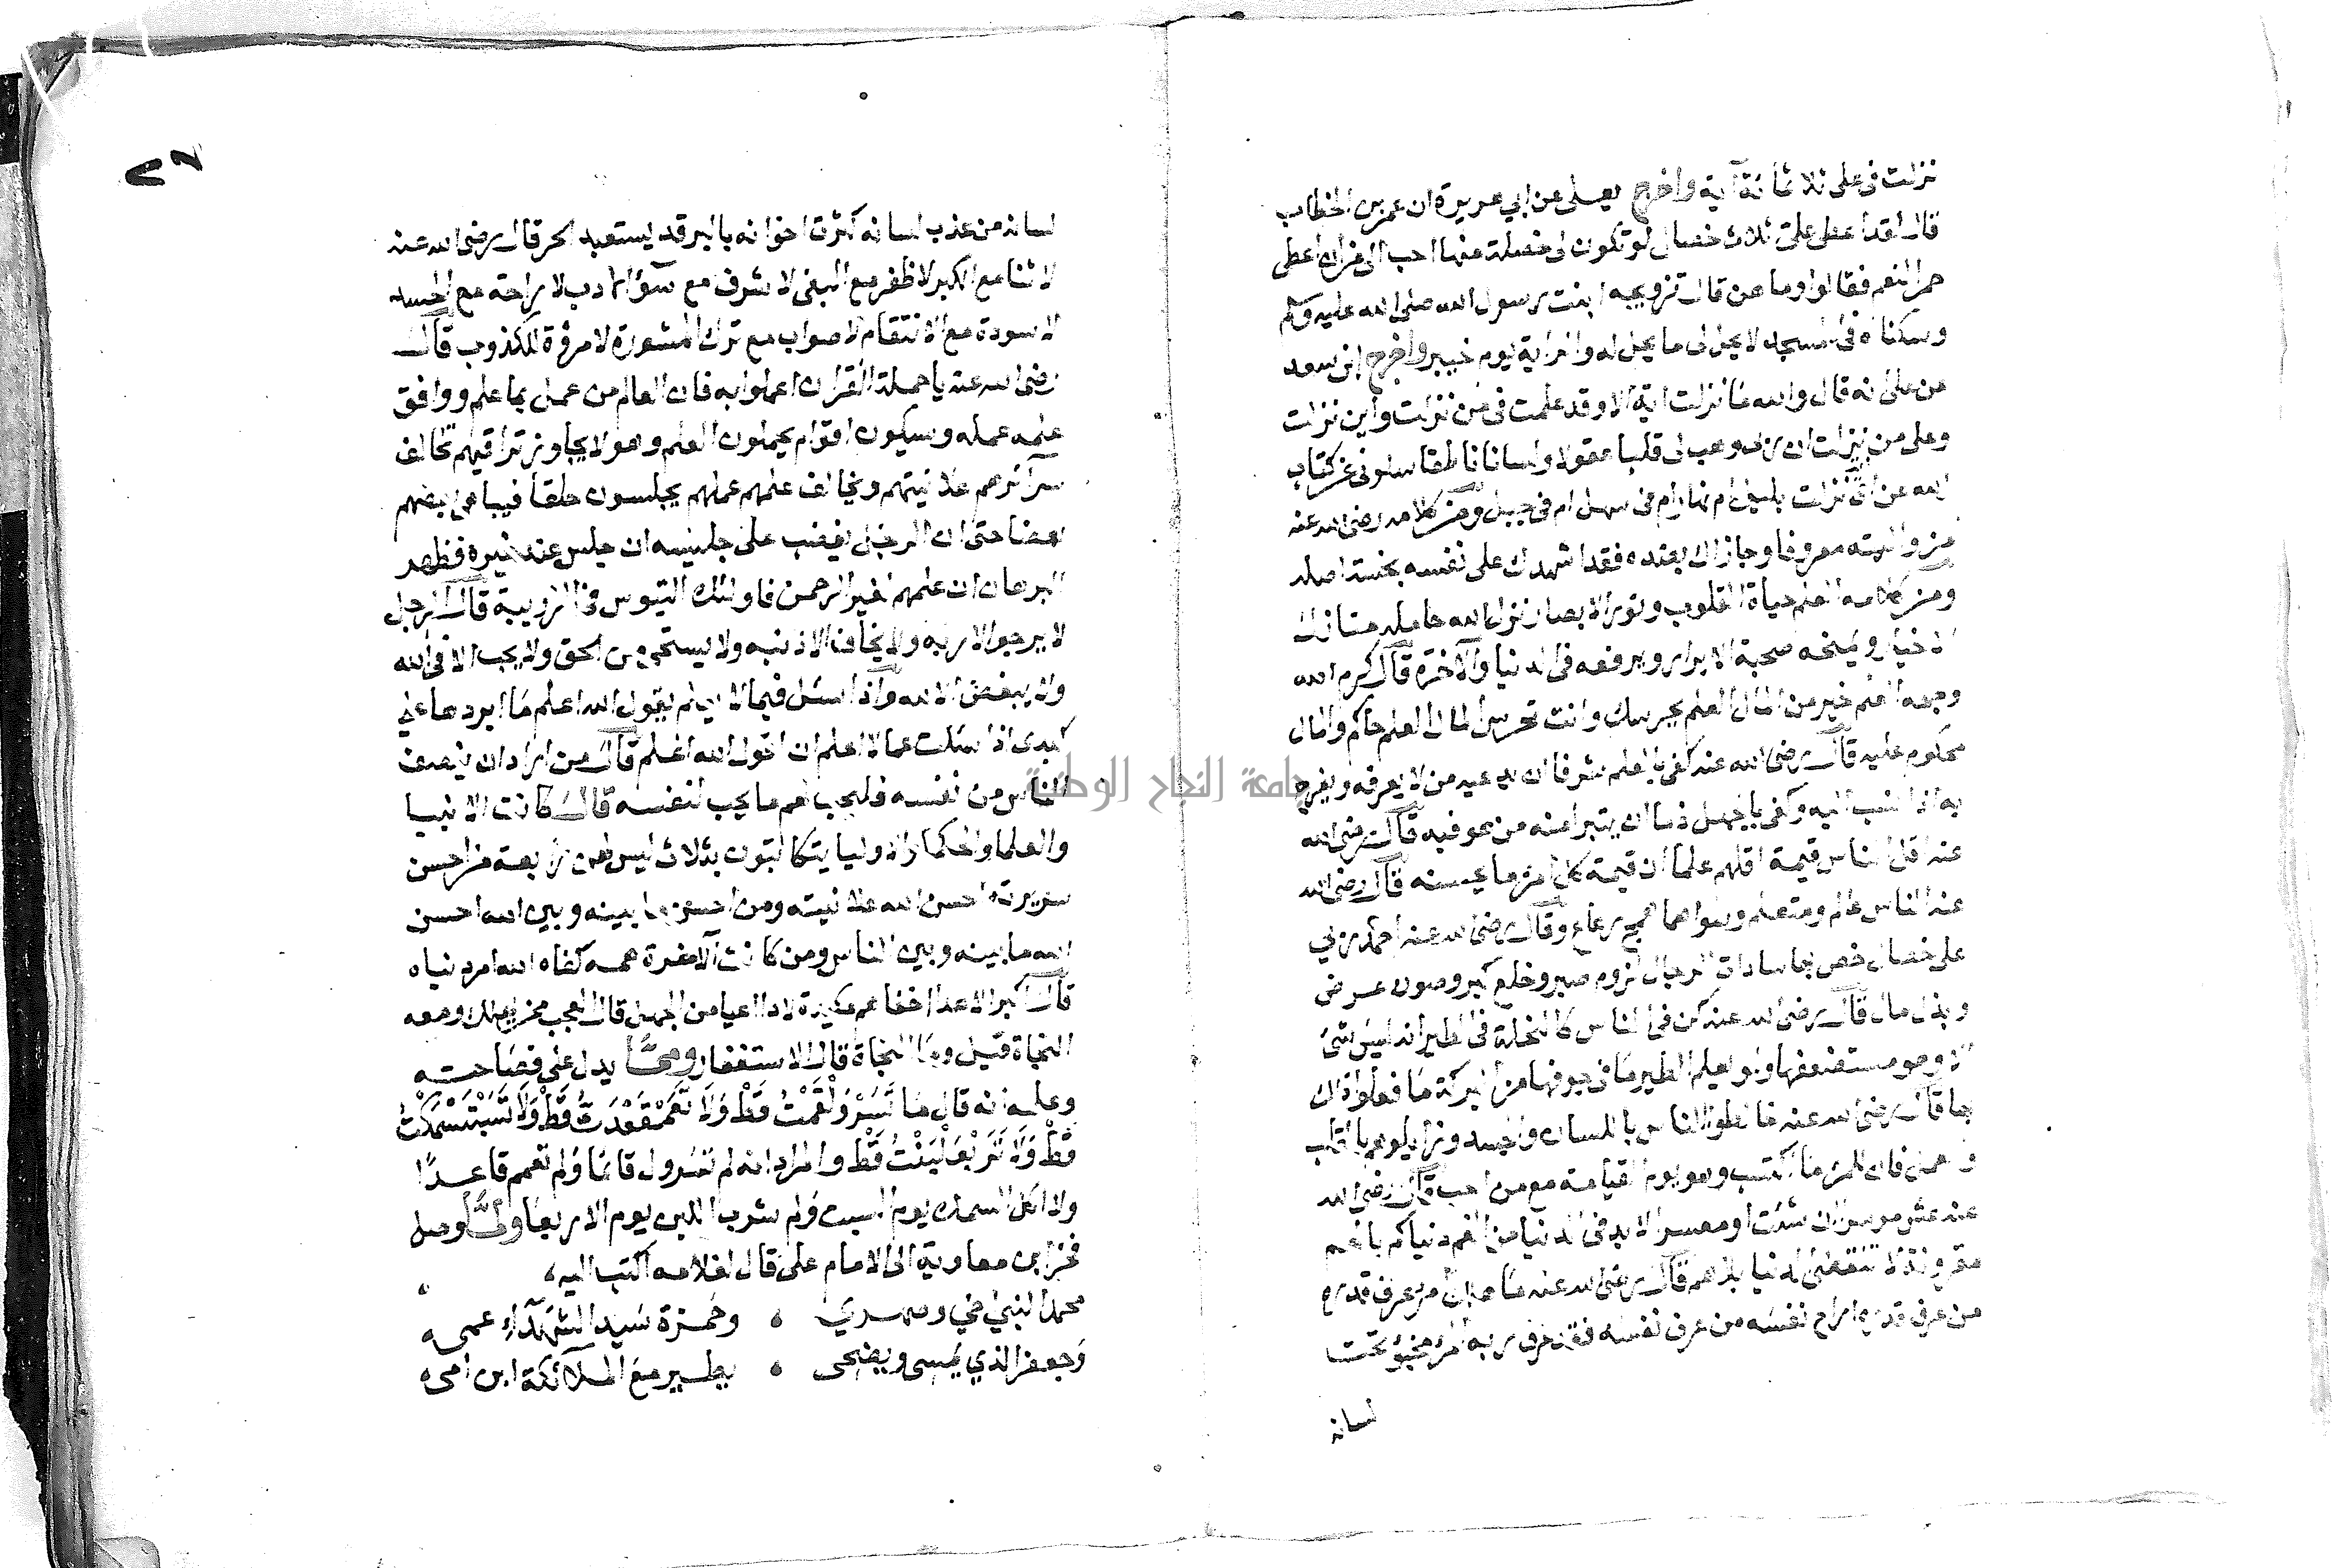 نزلت فى على ثلاثمائة آية واخرج يعلى عن ابي هريرة ان عمر بن الخطاب
قال لقد اعطى على ثلاث خصال لو تكون لى خصلة منها احب الى من ان اعطى
حمر النعم فقالوا وما هن قال تزويجه ابنت رسول الله صلى الله عليه وسلم
وسكناه فى المسجد لا يحل لى ما يحل له والراية يوم خيبر واخرج ابن سعد
عن على انه قال والله ما نزلت اية الا وقد علمت فى من نزلت واين نزلت
وعلى من نزلت ان ربى وهب لى قلبا عقولا ولسانا ناطقا سلونى عن كتاب
الله عن اى نزلت بليل ام نهار ام فى سهل ام فى جبل ومن كلامه رضى الله عنه
من واليته معروفا وجازاك بضده فقد اشهدك على نفسه بخسة اصله
ومن كلامه العلم حياة القلوب ونور الابصار نزل الله حامله منازل
الاخيار ويمنحه صحبة الابرار ويرفعه فى الدنيا والآخرة قال كرم الله
وجهه العلم خير من المال العلم يحرسك وانت تحرس المال العلم حاكم والمال
محكوم عليه قال رضى الله عنه كفى بالعلم شرفا ان يدعيه من لا يعرفه ويفرح
به اذا نسب اليه وكفى بالجهل ذما ان يتبرا منه من هو فيه قال رضى الله
عنه اقل الناس قيمة اقلهم علما ان قيمة كل امرء ما يحسنه قال رضى الله
عنه الناس عالم ومتعلم وسواهما همج رعاع وقال رضى الله عنه احمد ربي
على خصال خص بها سادات الرجال لزوم صبر وخلع كبر وصون عرض
وبذل مال قال رضى الله عنه كن فى الناس كالنحلة فى الطير انه ليس شئ
الا وهو مستضعفها ولو يعلم الطير ما فى جوفها من البركة ما فعلوا ذلك
بها قال رضى الله عنه خالطوا الناس باللسان والجسد وزايلوهم بالقلب
والعمل فان للمرء ما اكتسب وهو يوم القيامة مع من احب قال رضى الله
عنه عش موسرا ان شئت او معسرا لا بد فى الدنيا من الغم دنياكم بالغم
مقرونة لا تنقضى الدنيا بلا هم قال رضى الله عنه ما هلك امرء عرف قدره
من عرف قدره اراح نفسه من عرف نفسه فقد عرف ربه المرء مخبؤ تحت
لسانه
لسانه من عذب لسانه كثرت اخوانه بالبر قد يستعبد الحر قال رضى الله عنه
لا ثنا مع الكبر لا ظفر مع البغى لا شرف مع سؤ الادب لا راحة مع الحسد
لا سودة مع الانتقام لا صواب مع ترك المشورة لا مروة للكذوب قال
رضى الله عنه يا حملة القران اعملوا به فان العالم من عمل بما علم ووافق
علمه عمله وسيكون اقوام يحملون العلم وهو لا يجاوز تراقيهم تخالف
سرائرهم علانيتهم ويخالف علمهم عملهم يجلسون حلقا فيباهى بعضهم
بعضا حتى ان الرجل يغضب على جليسه ان جلس عند غيره فظهر
البرهان ان علمهم لغير الرحمن فاولئك التيوس فى الزريبة قال الرجل
لا يرجو الا ربه ولا يخاف الا ذنبه ولا يستحى من الحق ولا يحب الا فى الله
ولا يبغض الا لله واذا سئل فيما لا يعلم يقول الله اعلم ما ابردها على
كبدى اذا سئلت عما لا اعلم ان اقول الله اعلم قال من اراد ان ينصف
الناس من نفسه فليحب لهم ما يحب لنفسه قال كانت الانبيا
والعلما والحكما والاوليا يتكاتبون بثلاث ليس لهن رابعة من احسن
سريرته احسن الله علانيته ومن احسن ما بينه وبين الله احسن
الله ما بينه وبين الناس ومن كانت الآخرة همه كفاه الله امر دنياه
قال اكبر الاعدا اخفاهم مكيدة لا دا اعيا من الجهل قال العجب ممن يهلك ومعه
النجاة قيل وما النجاة قال الاستغفار ومما يدل على فصاحته
وعلمه انه قال ما تَسَرْوَلْقَمْتُ قط وَلَا تَعَمَّقَعَدْتُ قَطْ وَلَا تَسَبْتَسْمَكْتُ
قَطْ وَلَا تَرَبْعَلْبَنْتُ قَطْ والمراد انه لم تسرول قائما ولم تعمم قاعدًا
ولا اكل السمك يوم السبت ولم شرب اللبن يوم الاربعا ولما وصل
فخر ابن معاوية الى الامام على قال لغلامه اكتب اليه
محمد النبي اخي وصهري ، وحمزة سيد الشهدآء عمى
وجعفر الذي يمسى ويضحى ، يطير مع الملآئكة ابن امى
جامعة النجاح الوطنية